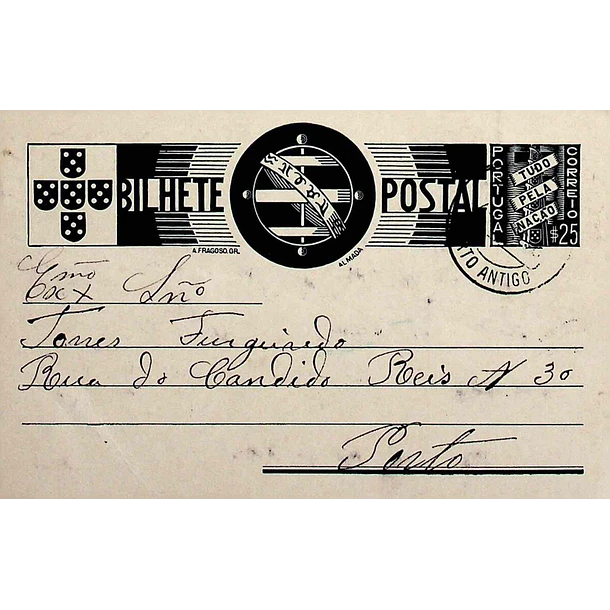 BILHETE POSTAL
PORTUGAL
TUDO
PELA
NAÇÃO
CORREIO
$25
A. FRAGOSO, GR.
ALMADA
TO ANTIGO
Exmo Snº
Torres
Rua do Candido Reis N 30
Porto